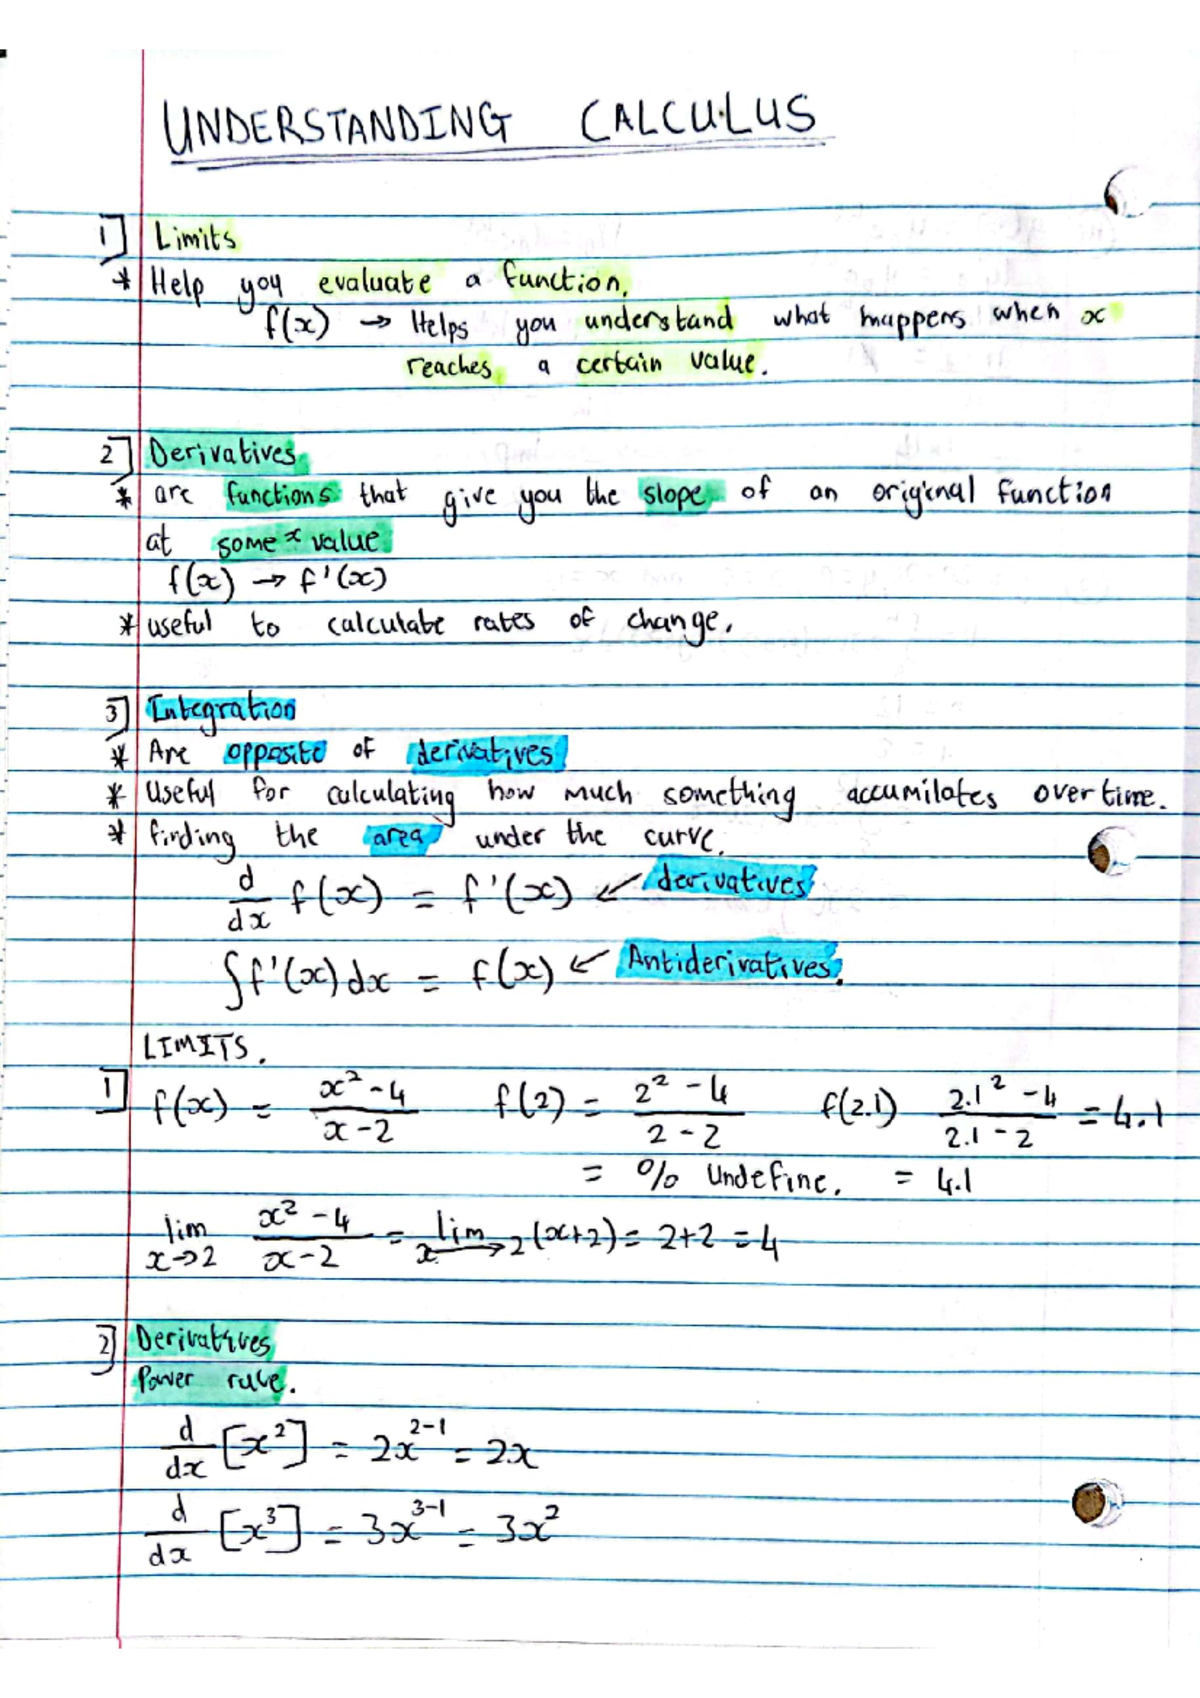 UNDERSTANDING CALCULUS
1] Limits
* Help you evaluate a function.
f(x) → Helps you understand what happens when x
reaches a certain value.
2] Derivatives
* are functions that give you the slope of an original function
at some x value
f(x) → f'(x)
* useful to calculate rates of change.
3] Integration
* Are opposite of derivatives
* Useful for calculating how much something accumilates over time.
* finding the area under the curve.
d/dx f(x) = f'(x) ← derivatives
∫f'(x)dx = f(x) ← Antiderivatives.
LIMITS.
1] f(x) = (x²-4)/(x-2) f(2) = (2²-4)/(2-2) f(2.1) (2.1²-4)/(2.1-2) = 4.1
= 0/0 Undefine. = 4.1
lim x→2 (x²-4)/(x-2) = lim x→2 (x+2) = 2+2 = 4
2] Derivatives
Power rule.
d/dx [x²] = 2x²⁻¹ = 2x
d/dx [x³] = 3x³⁻¹ = 3x²